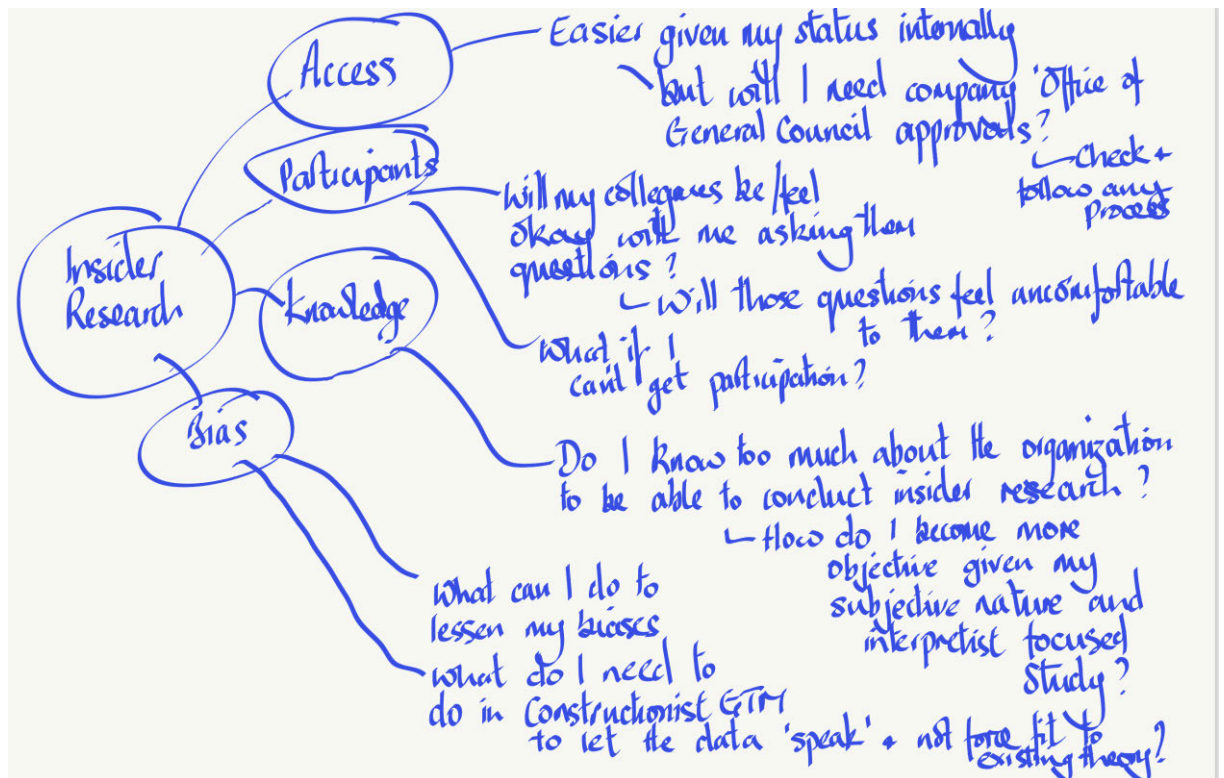 Insider
Research
Access
Easier given my status internally
but will I need company 'Office of
General Council approvals?
check +
follow any
process
Participants
Will my collegues be/feel
okay with me asking them
questions?
Will those questions feel uncomfortable
to them?
What if I
can't get participation?
Knowledge
Do I know too much about the organization
to be able to conduct insider research?
How do I become more
objective given my
subjective nature and
interpretist focused
study?
Bias
What can I do to
lessen my biases
What do I need to
do in Constructionist GTM
to let the data 'speak' + not force fit to
existing theory?